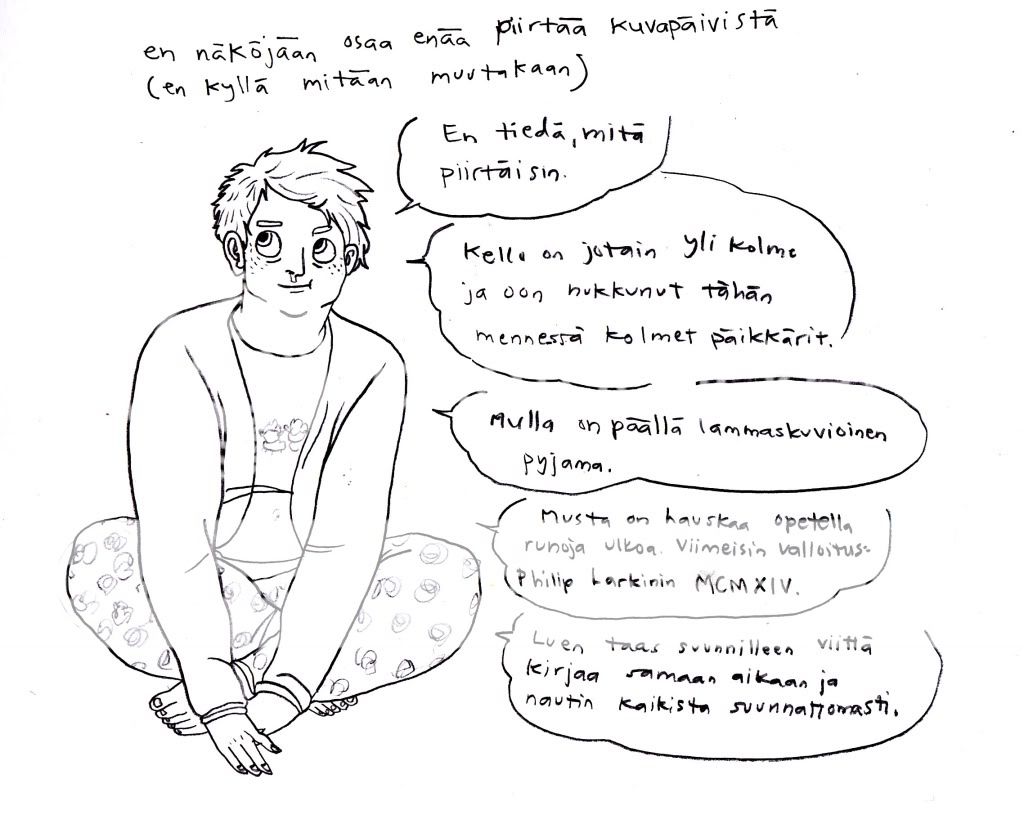 en näköjään osaa enää piirtää kuvapäivistä
(en kyllä mitään muutakaan)
En tiedä, mitä
piirtäisin.
Kello on jotain yli kolme
ja oon nukkunut tähän
mennessä kolmet päikkärit.
Mulla on päällä lammaskuvioinen
pyjama.
Musta on hauskaa opetella
runoja ulkoa. Viimeisin valloitus:
Philip Larkinin MCMXIV.
Luen taas suunnilleen viittä
kirjaa samaan aikaan ja
nautin kaikista suunnattomasti.